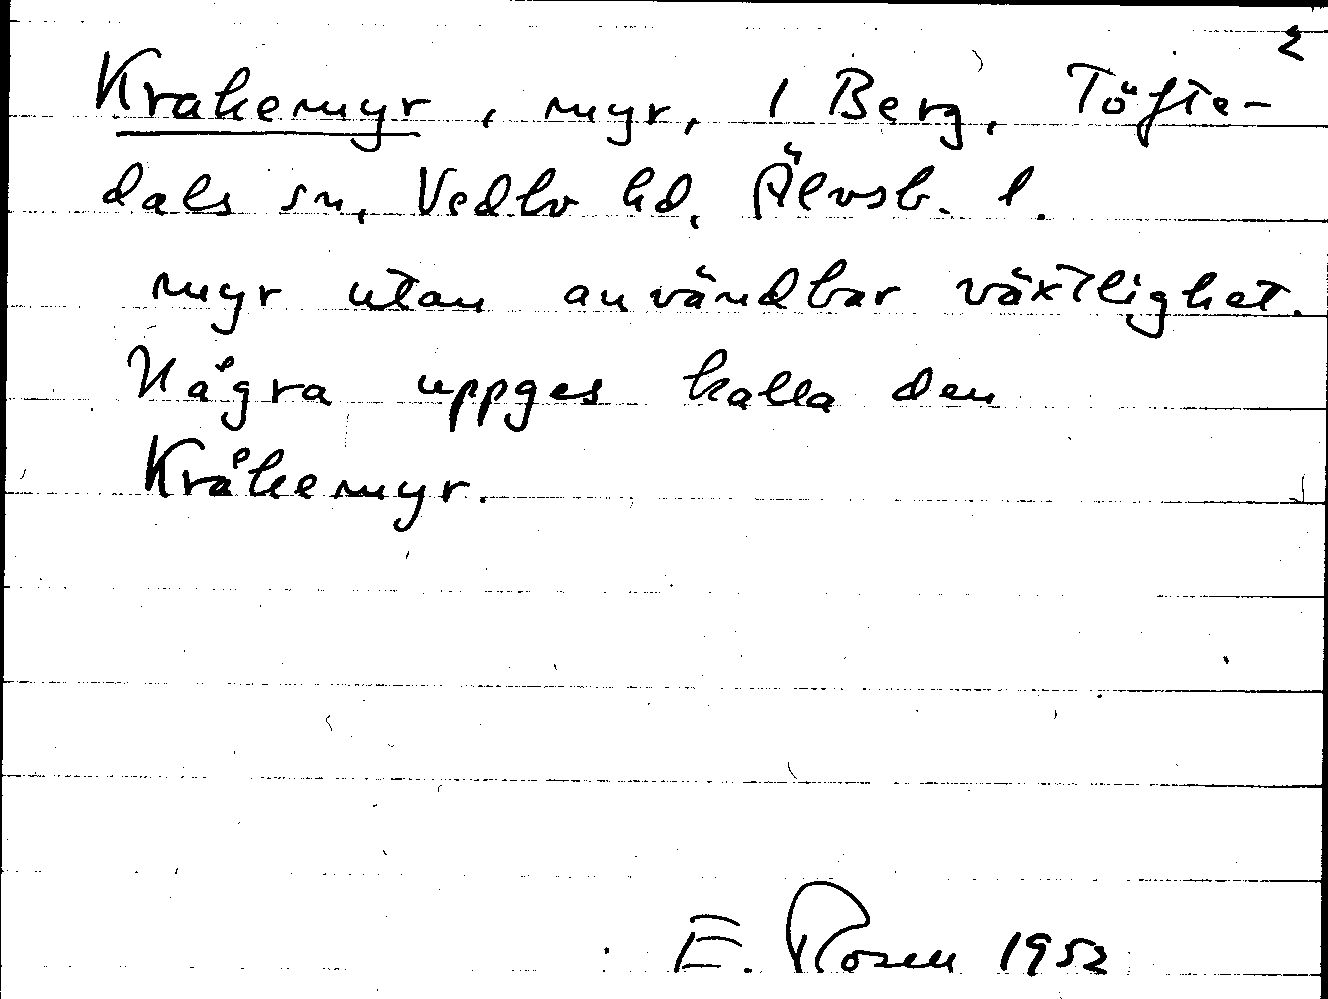 2
Krakemyr, myr, 1 Berg, Töfte-
dals sn, Vedbo hd, Älvsb. l.
myr utan användbar växtlighet.
Några uppges kalla den
Kråkemyr.
E. Rosen 1952